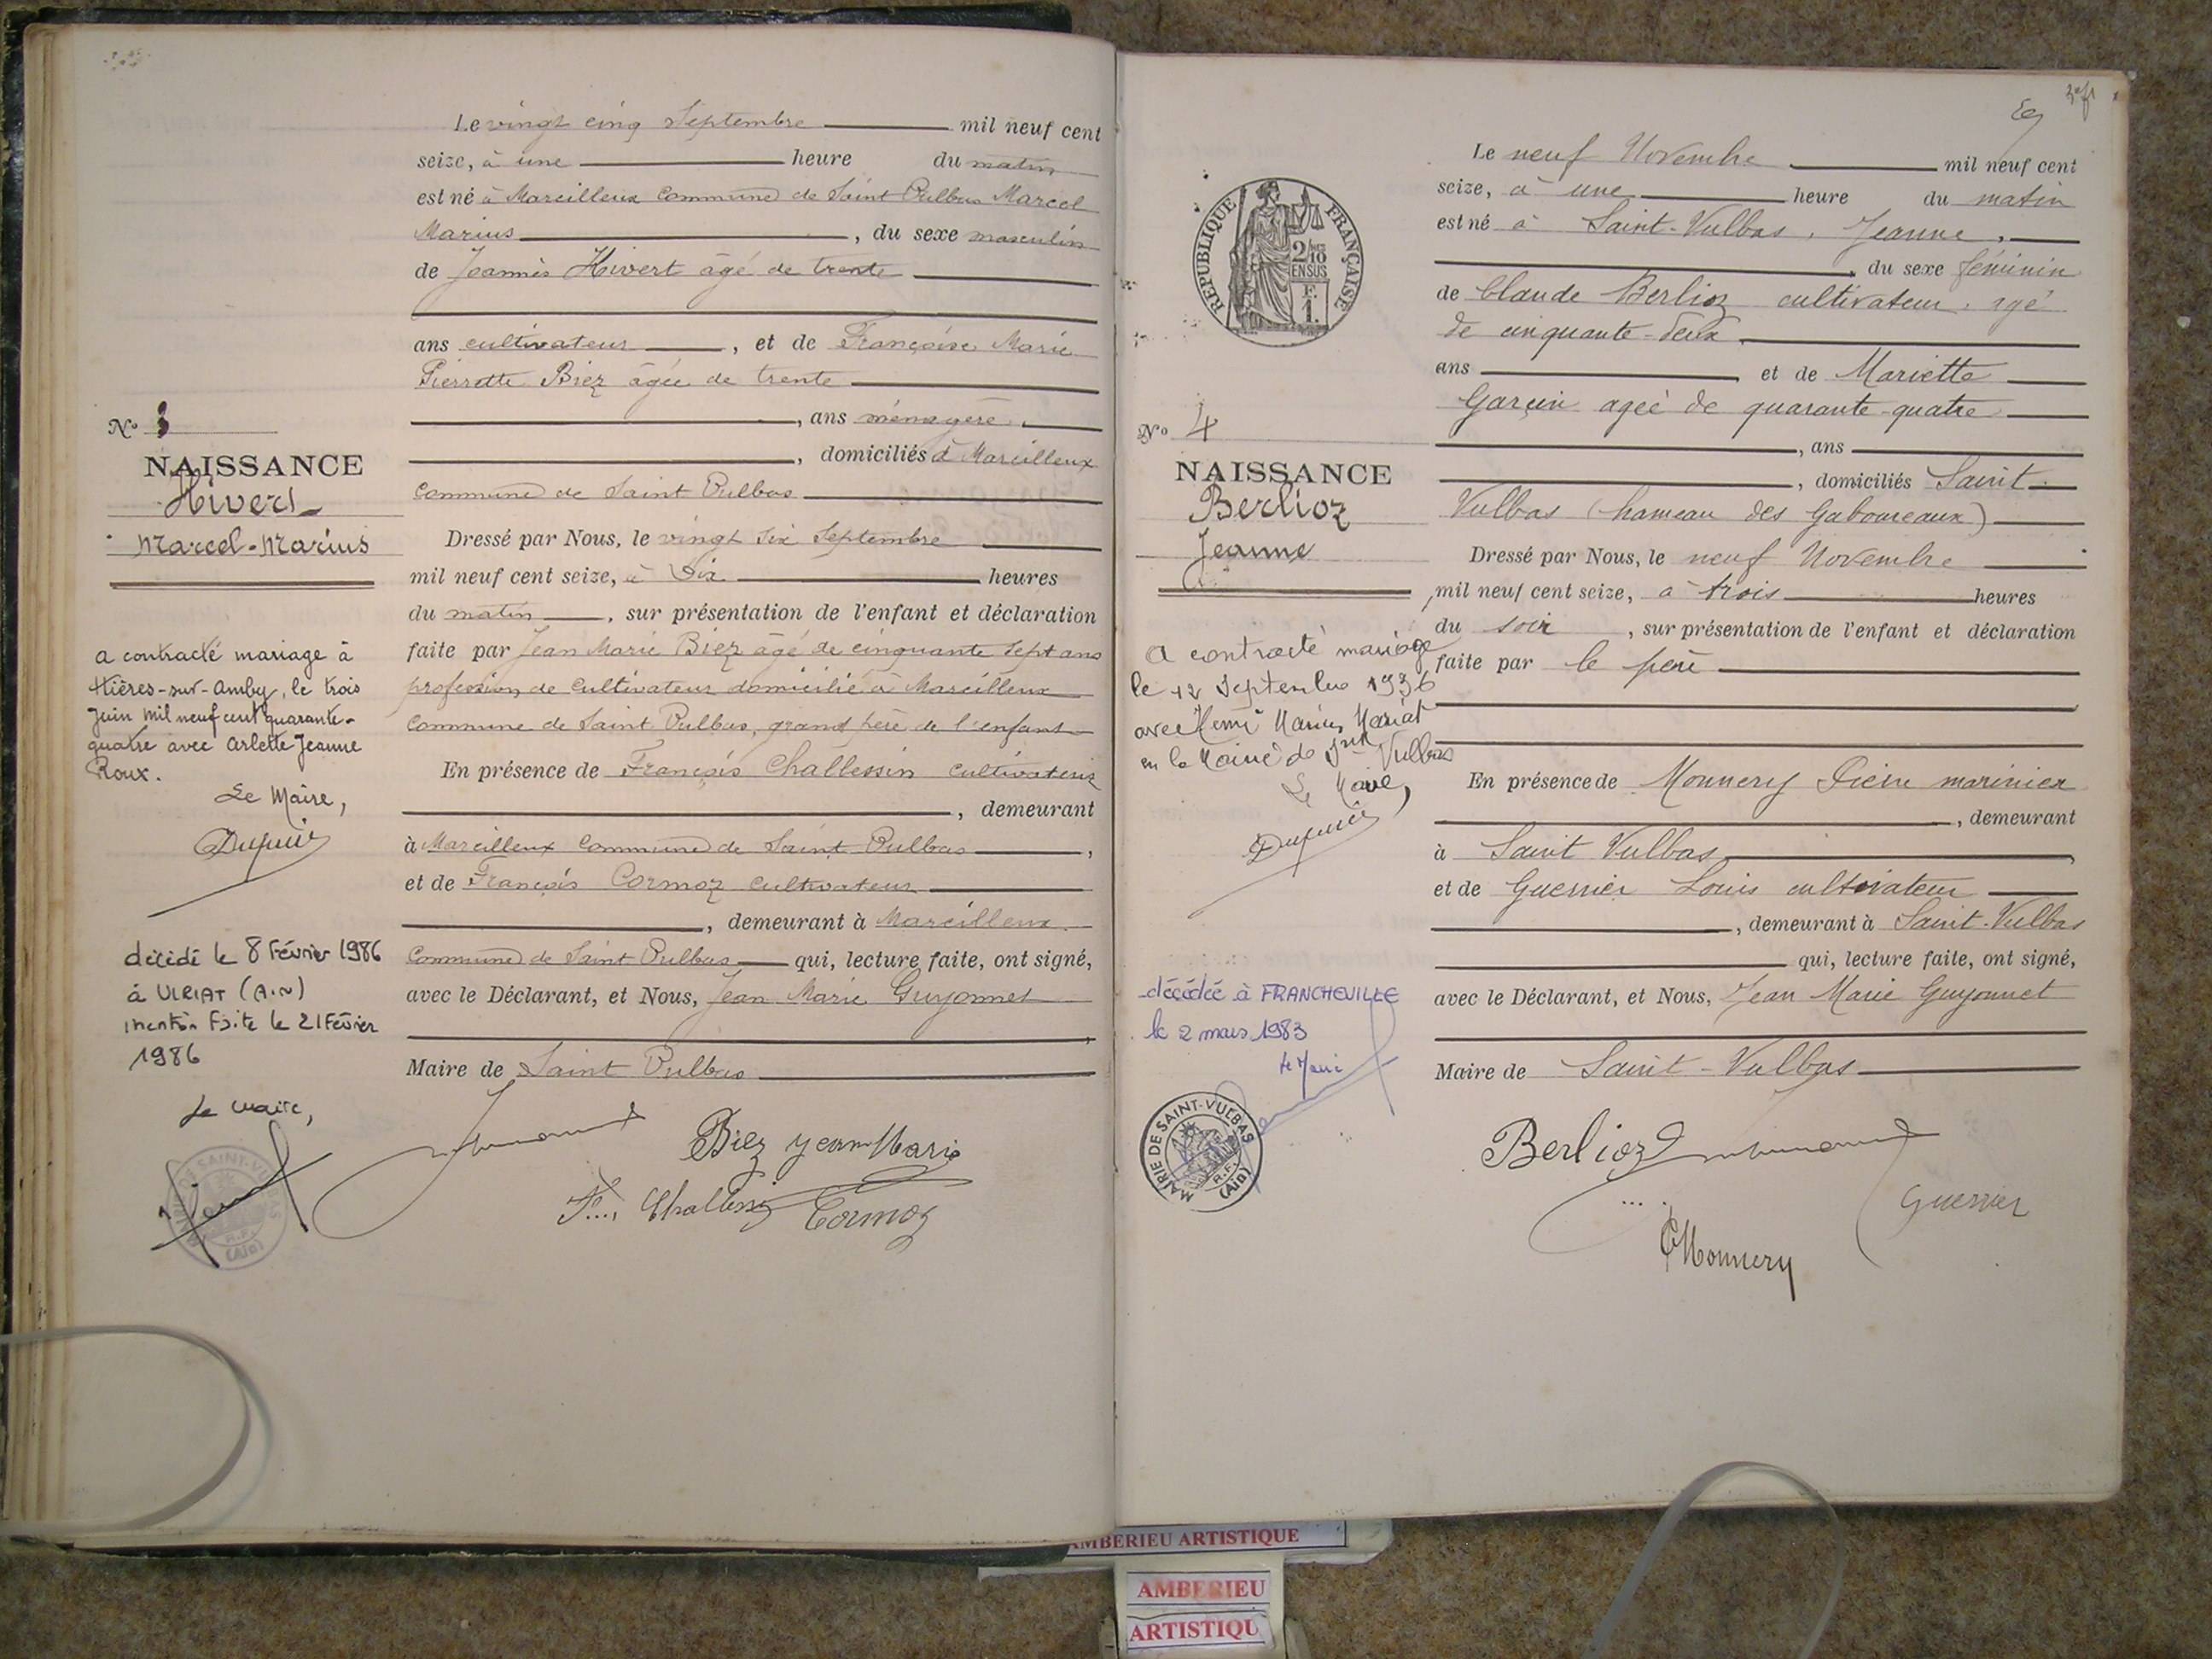 Le vingt cinq Septembre mil neuf cent
seize, à une heure du matin
est né à Marcilleux Commune de Saint Vulbas Marcel
Marius, du sexe masculin
de Joannès Hivert âgé de trente
ans cultivateur, et de Françoise Marie
Pierrette Biez âgée de trente
, ans ménagère.
, domiciliés à Marcilleux
Commune de Saint Vulbas
Dressé par Nous, le vingt six Septembre
mil neuf cent seize, à dix heures
du matin, sur présentation de l'enfant et déclaration
faite par Jean Marie Biez âgé de cinquante sept ans
profession de cultivateur domicilié à Marcilleux
Commune de Saint Vulbas, grand père de l'enfant
En présence de François Challessin cultivateur
, demeurant
à Marcilleux Commune de Saint Vulbas,
et de François Cormoz cultivateur
, demeurant à Marcilleux.
Commune de Saint Vulbas qui, lecture faite, ont signé,
avec le Déclarant, et Nous, Jean Marie Guyonnet
Maire de Saint Vulbas
Biez jean Marie
Challessin Cormoz
No 3
NAISSANCE
Hivert
Marcel-Marius
a contracté mariage à
Hières-sur-Amby, le trois
Juin mil neuf cent quarante-
quatre avec Arlette Jeanne
Roux.
Le Maire,
Dupuis
décédé le 8 Février 1986
à VIRIAT (Ain)
mention faite le 21 Février
1986
Le Maire,
MAIRIE DE SAINT-VULBAS
R.F.
(Ain)
REPUBLIQUE FRANÇAISE
2/10
EN SUS
F.
1.
Le neuf Novembre mil neuf cent
seize, à une heure du matin
est né à Saint-Vulbas, Jeanne,
, du sexe féminin
de Claude Berlioz cultivateur, agé
de cinquante-deux
ans et de Mariette
Garcin ageé de quarante-quatre
, ans
, domiciliés Saint-
Vulbas (hameau des Gaboureaux)
Dressé par Nous, le neuf Novembre
mil neuf cent seize, à trois heures
du soir, sur présentation de l'enfant et déclaration
faite par le père
En présence de Monnery Pierre marinier
, demeurant
à Saint Vulbas,
et de Guerrier Louis cultivateur
, demeurant à Saint-Vulbas
qui, lecture faite, ont signé,
avec le Déclarant, et Nous, Jean Marie Guyonnet
Maire de Saint-Vulbas
Berlioz
Guerrier
Monnery
No 4
NAISSANCE
Berlioz
Jeanne
A contracté mariage
le 12 Septembre 1936
avec Henri Marius Mariat
en la Mairie de St Vulbas
Le Maire,
Dupuis
décédée à FRANCHEVILLE
le 2 mars 1983
MAIRIE DE SAINT-VULBAS
R.F.
(Ain)
AMBERIEU ARTISTIQUE
AMBERIEU
ARTISTIQU